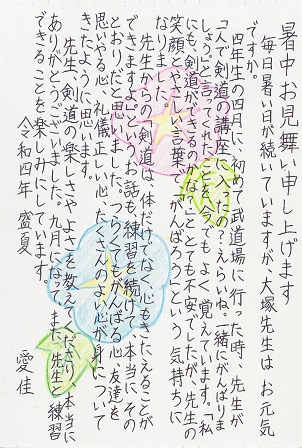 暑中お見舞い申し上げます
毎日暑い日が続いていますが、大塚先生はお元気
ですか。
四年生の四月に、初めて武道場に行った時、先生が
「一人で剣道の講座に入ったの？えらいね。一緒にがんばりま
しょう」と言ってくれたことを、今でもよく覚えています。「私
にも、剣道ができるのかな」ととても不安でしたが、先生の
笑顔とやさしい言葉で「がんばろう」という気持ちに
できます」というお話も、練習を続けて、本当にその
先生からの「剣道は、体だけでなく、心もきたえることが
とおりだと思いました。つらくてもがんばる心、友達を
思いやる心、礼儀正しい心、たくさんのよい心が身について
きたように思います。
先生、剣道の楽しさやよさを教えてくださり、本当に
ありがとうございました。九月になって、また先生と練習
できることを楽しみにしています。
令和四年 盛夏
愛佳